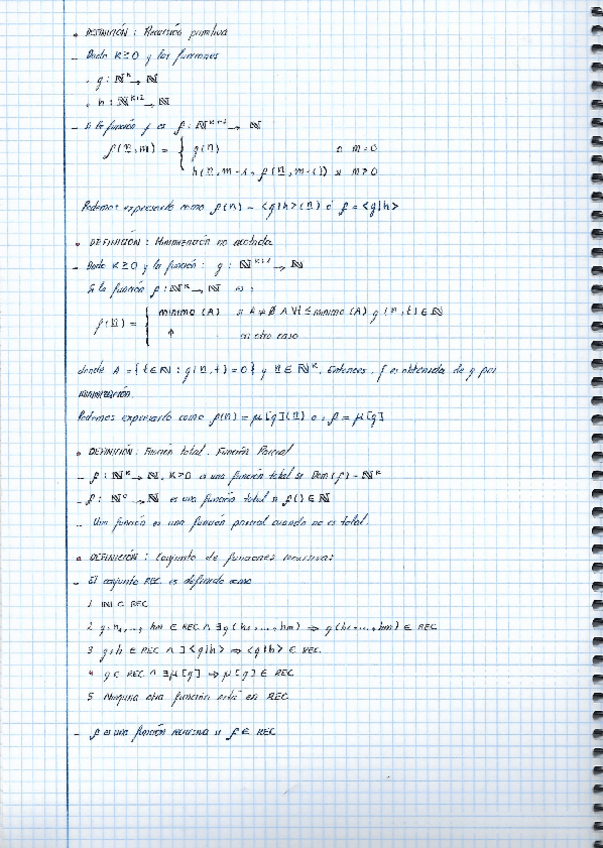 • DEFINICIÓN : Recursión primitiva
- Dado K≥0 y las funciones
• g : ℕᴷ → ℕ
• h : ℕᴷ⁺² → ℕ
- Si la función f es f : ℕᴷ⁺¹ → ℕ
f(n,m) = { g(n) si m=0
h(n,m-1, f(n,m-1)) si m>0
Podemos expresarlo como f(n) = <g|h>(n) ó f = <g|h>
• DEFINICIÓN : Minimización no acotada
- Dado K≥0 y la función : g : ℕᴷ⁺¹ → ℕ
Si la función f : ℕᴷ → ℕ es :
f(n) = { minimo (A) si A≠∅ ∧ ∀t ≤ minimo (A) g(n,t) ∈ ℕ
↑ en otro caso
donde A = {t∈ℕ : g(n,t) = 0} y n ∈ ℕᴷ. Entonces, f es obtenida de g por
minimización.
Podemos expresarlo como f(n) = μ[g](n) o f = μ[g]
• DEFINICIÓN : Función total. Función Parcial
- f : ℕᴷ → ℕ, K>0 es una función total si Dom(f) = ℕᴷ
- f : ℕ⁰ → ℕ es una función total si f() ∈ ℕ
- Una función es una función parcial cuando no es total.
• DEFINICIÓN : Conjunto de funciones recursivas
- El conjunto REC es definido como
1 INI ⊂ REC
2 g, h₁, ..., hm ∈ REC ∧ ∃ g(h₁, ..., hm) ⇒ g(h₁, ..., hm) ∈ REC
3 g, h ∈ REC ∧ ∃ <g|h> ⇒ <g|h> ∈ REC.
4 g ∈ REC ∧ ∃ μ[g] ⇒ μ[g] ∈ REC
5 Ninguna otra función está en REC
- f es una función recursiva si f ∈ REC